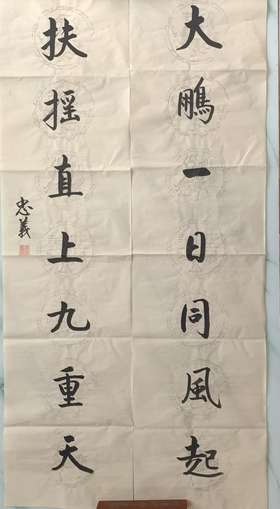 大鵬一日同風起
扶摇直上九重天
忠義